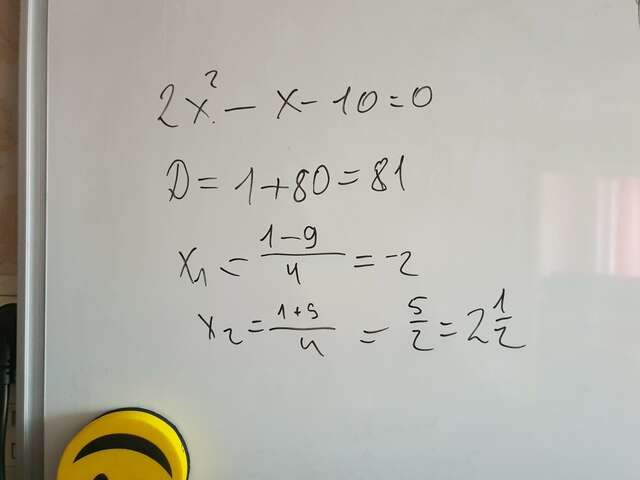 2x² - x - 10 = 0
D = 1 + 80 = 81
x₁ = (1 - 9)/4 = -2
x₂ = (1 + 5)/4 = 5/2 = 2 1/2